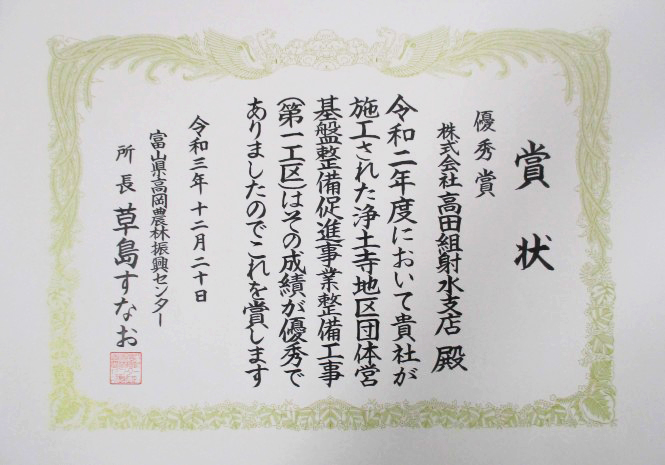 賞状
優秀賞
株式会社高田組射水支店 殿
令和二年度において貴社が
施工された浄土寺地区団体営
基盤整備促進事業整備工事
(第一工区)はその成績が優秀で
ありましたのでこれを賞します
令和三年十二月二十日
富山県高岡農林振興センター
所長 草島すなお